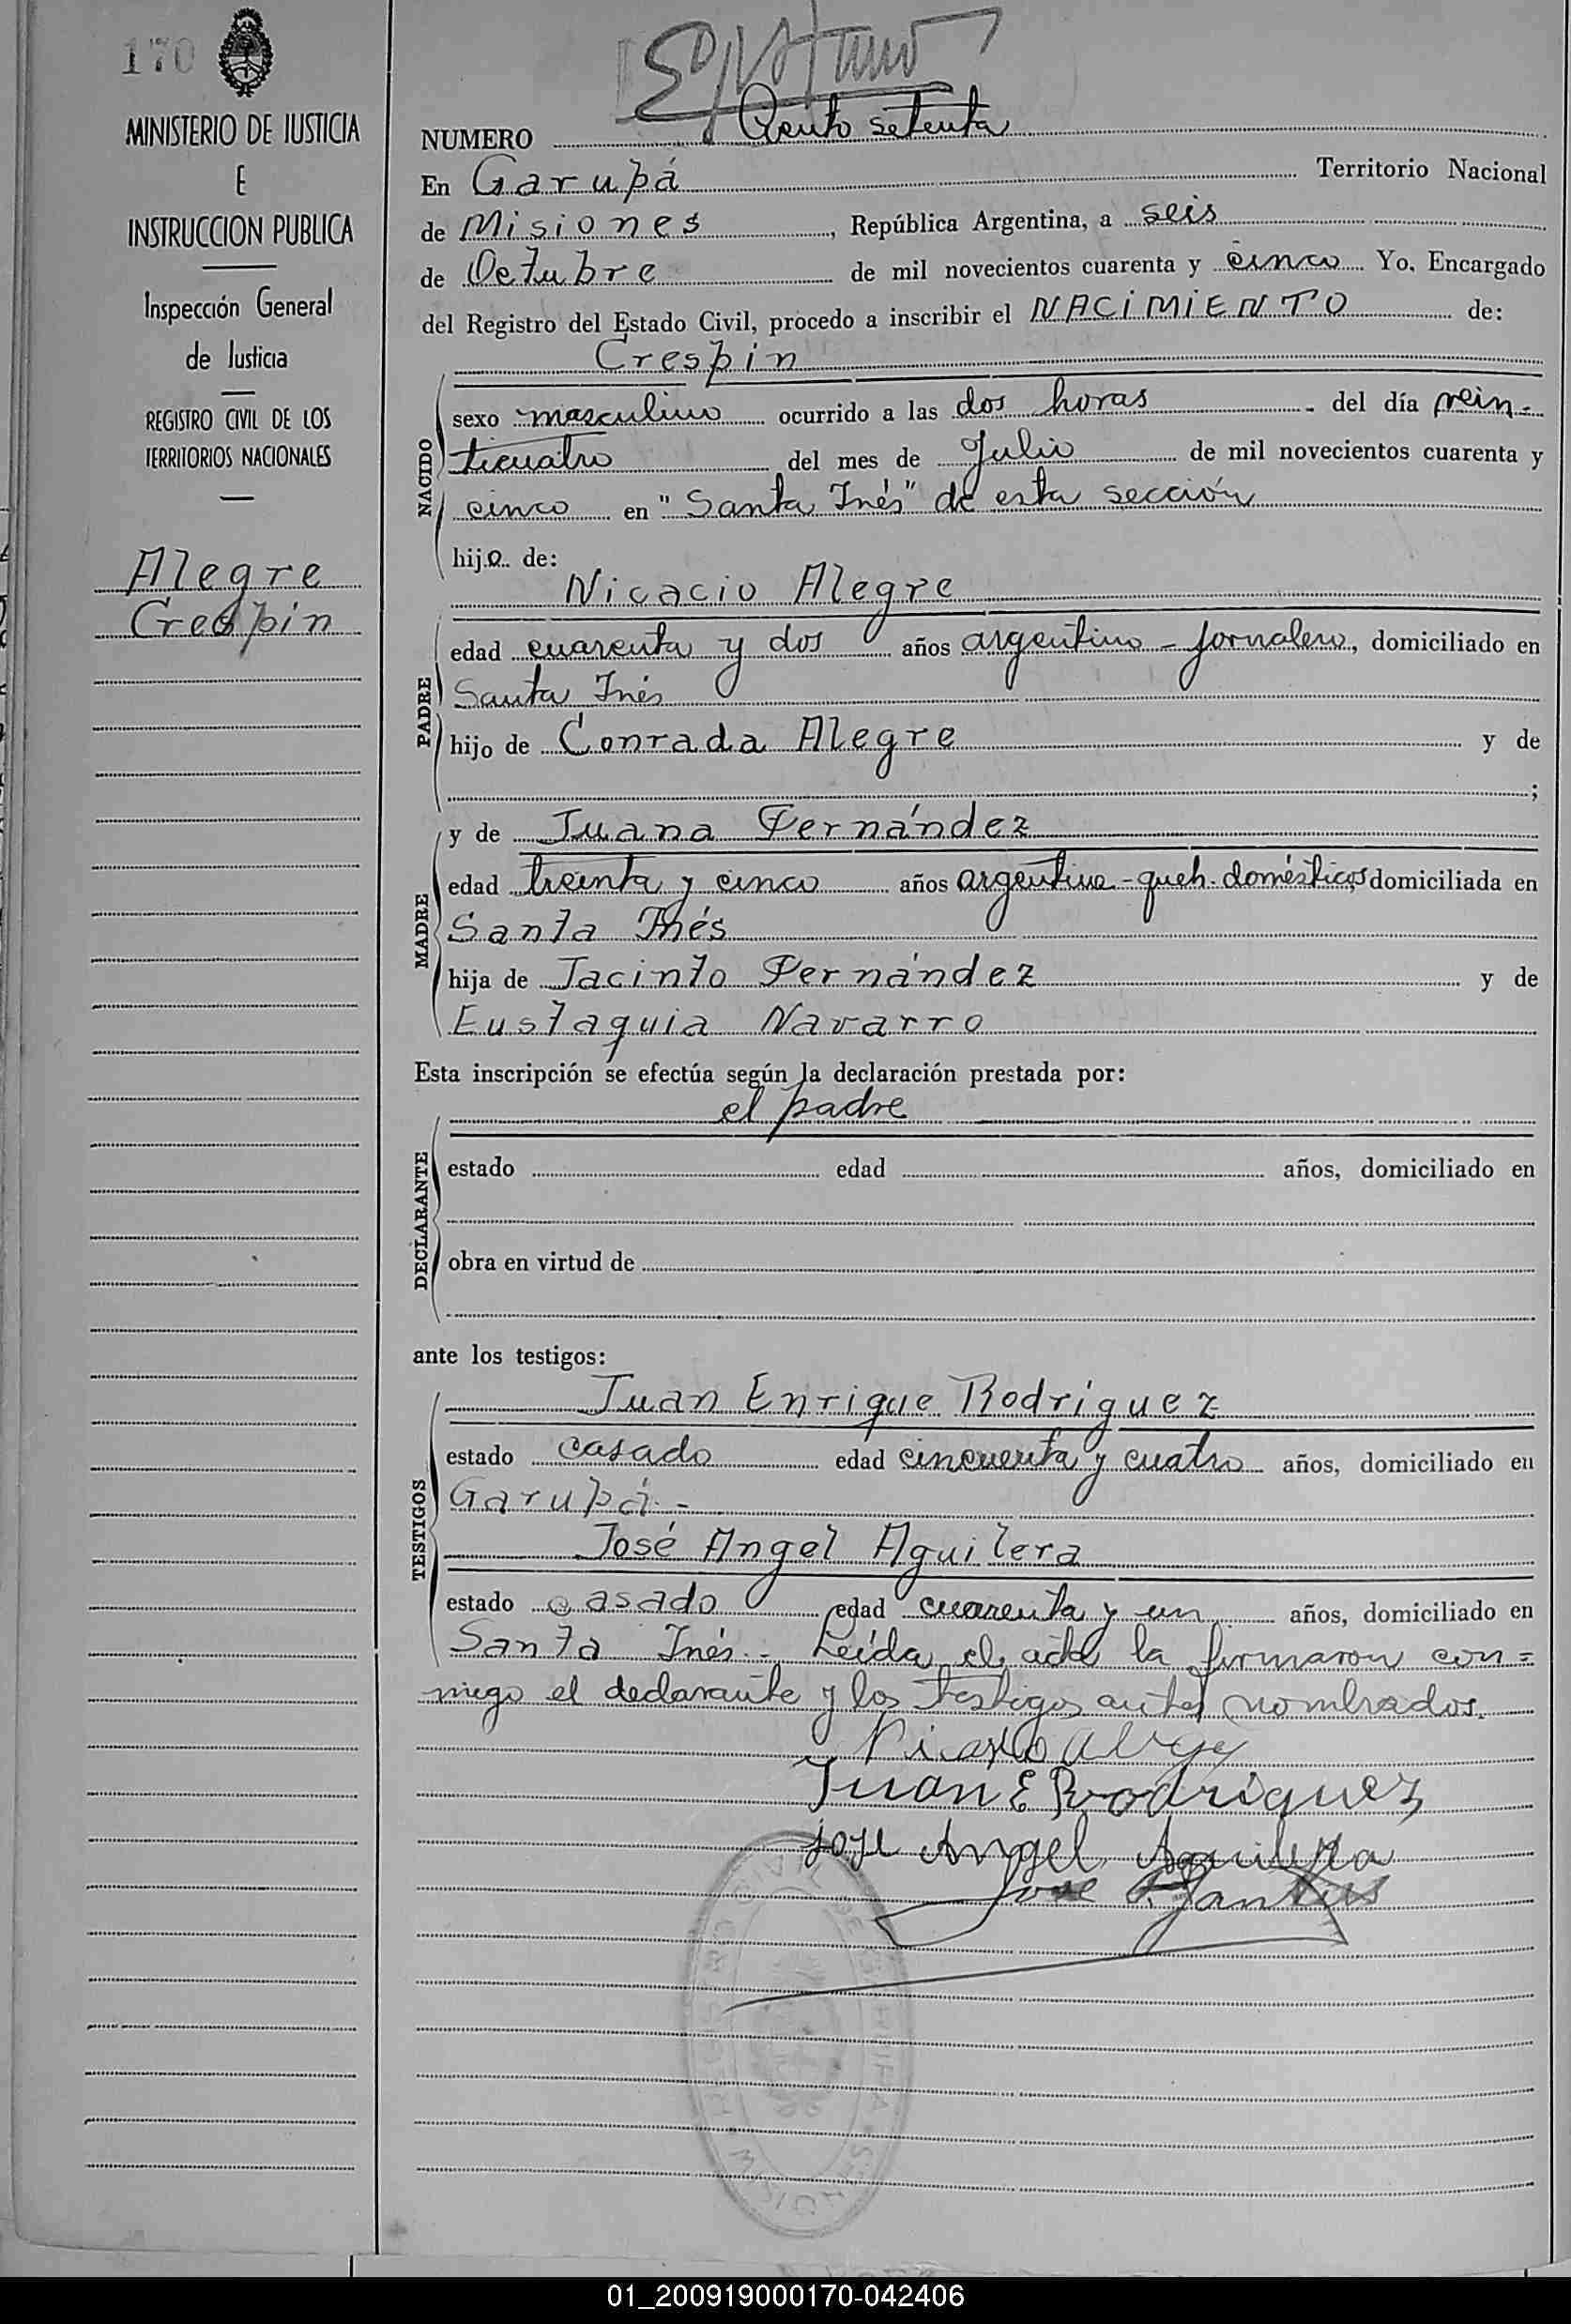 170
MINISTERIO DE JUSTICIA
E
INSTRUCCION PUBLICA
Inspección General
de Justicia
REGISTRO CIVIL DE LOS
TERRITORIOS NACIONALES
Alegre
Crespin
NUMERO Ciento setenta
En Garupá Territorio Nacional
de Misiones, República Argentina, a seis
de Octubre de mil novecientos cuarenta y cinco Yo, Encargado
del Registro del Estado Civil, procedo a inscribir el NACIMIENTO de:
Crespin
NACIDO
sexo masculino ocurrido a las dos horas del día vein-
ticuatro del mes de Julio de mil novecientos cuarenta y
cinco en "Santa Inés" de esta sección
hijo de:
Nicacio Alegre
PADRE
edad cuarenta y dos años argentino - jornalero, domiciliado en
Santa Inés
hijo de Conrada Alegre y de
;
MADRE
y de Juana Fernández
edad treinta y cinco años argentina - queh. domésticos domiciliada en
Santa Inés
hija de Jacinto Fernández y de
Eustaquia Navarro
Esta inscripción se efectúa según la declaración prestada por:
el padre
DECLARANTE
estado edad años, domiciliado en
obra en virtud de
ante los testigos:
TESTIGOS
Juan Enrique Rodríguez
estado casado edad cincuenta y cuatro años, domiciliado en
Garupá.-
José Angel Aguilera
estado casado edad cuarenta y un años, domiciliado en
Santa Inés.- Leída el acta la firmaron con=
migo el declarante y los testigos antes nombrados.
Juan E Rodriguez
jose Angel Aguilera
Jose
01_200919000170-042406